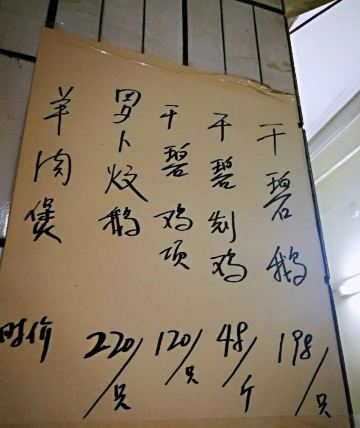 干碧鹅
198/只
干碧鸡
48/斤
干碧鸡项
120/只
罗卜炆鹅
220/只
羊肉煲
时价